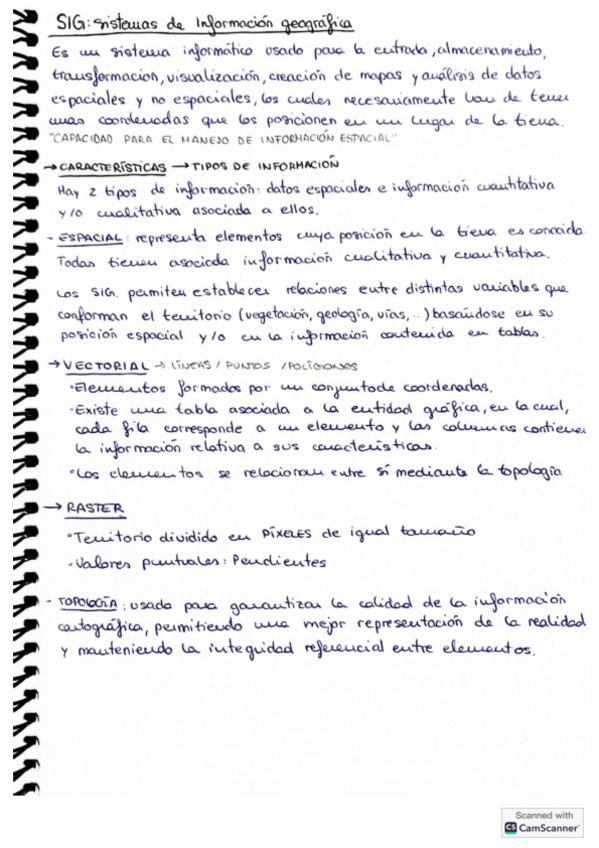 SIG: sistemas de Información geográfica
Es un sistema informático usado para la entrada, almacenamiento,
transformacion, visualización, creación de mapas y análisis de datos
espaciales y no espaciales, los cuales necesariamente han de tener
unas coordenadas que los posicionen en un lugar de la tierra.
"CAPACIDAD PARA EL MANEJO DE INFORMACIÓN ESPACIAL"
→ CARACTERÍSTICAS → TIPOS DE INFORMACIÓN
Hay 2 tipos de información: datos espaciales e información cuantitativa
y/o cualitativa asociada a ellos.
- ESPACIAL: representa elementos cuya posición en la tierra es conocida
Todas tienen asociada información cualitativa y cuantitativa.
Los SIG. permiten establecer relaciones entre distintas variables que
conforman el territorio (vegetación, geología, vías,...) basándose en su
posición espacial y/o en la información contenida en tablas.
→ VECTORIAL → LÍNEAS / PUNTOS / POLÍGONOS
· Elementos formados por un conjunto de coordenadas.
· Existe una tabla asociada a la entidad gráfica, en la cual,
cada fila corresponde a un elemento y las columnas contienen
la información relativa a sus características.
· Los elementos se relacionan entre sí mediante la topología
→ RASTER
· Territorio dividido en PÍXELES de igual tamaño
· Valores puntuales: Pendientes
- TOPOLOGÍA: usado para garantizar la calidad de la información
cartográfica, permitiendo una mejor representación de la realidad
y manteniendo la integridad referencial entre elementos.
Scanned with
CS CamScanner